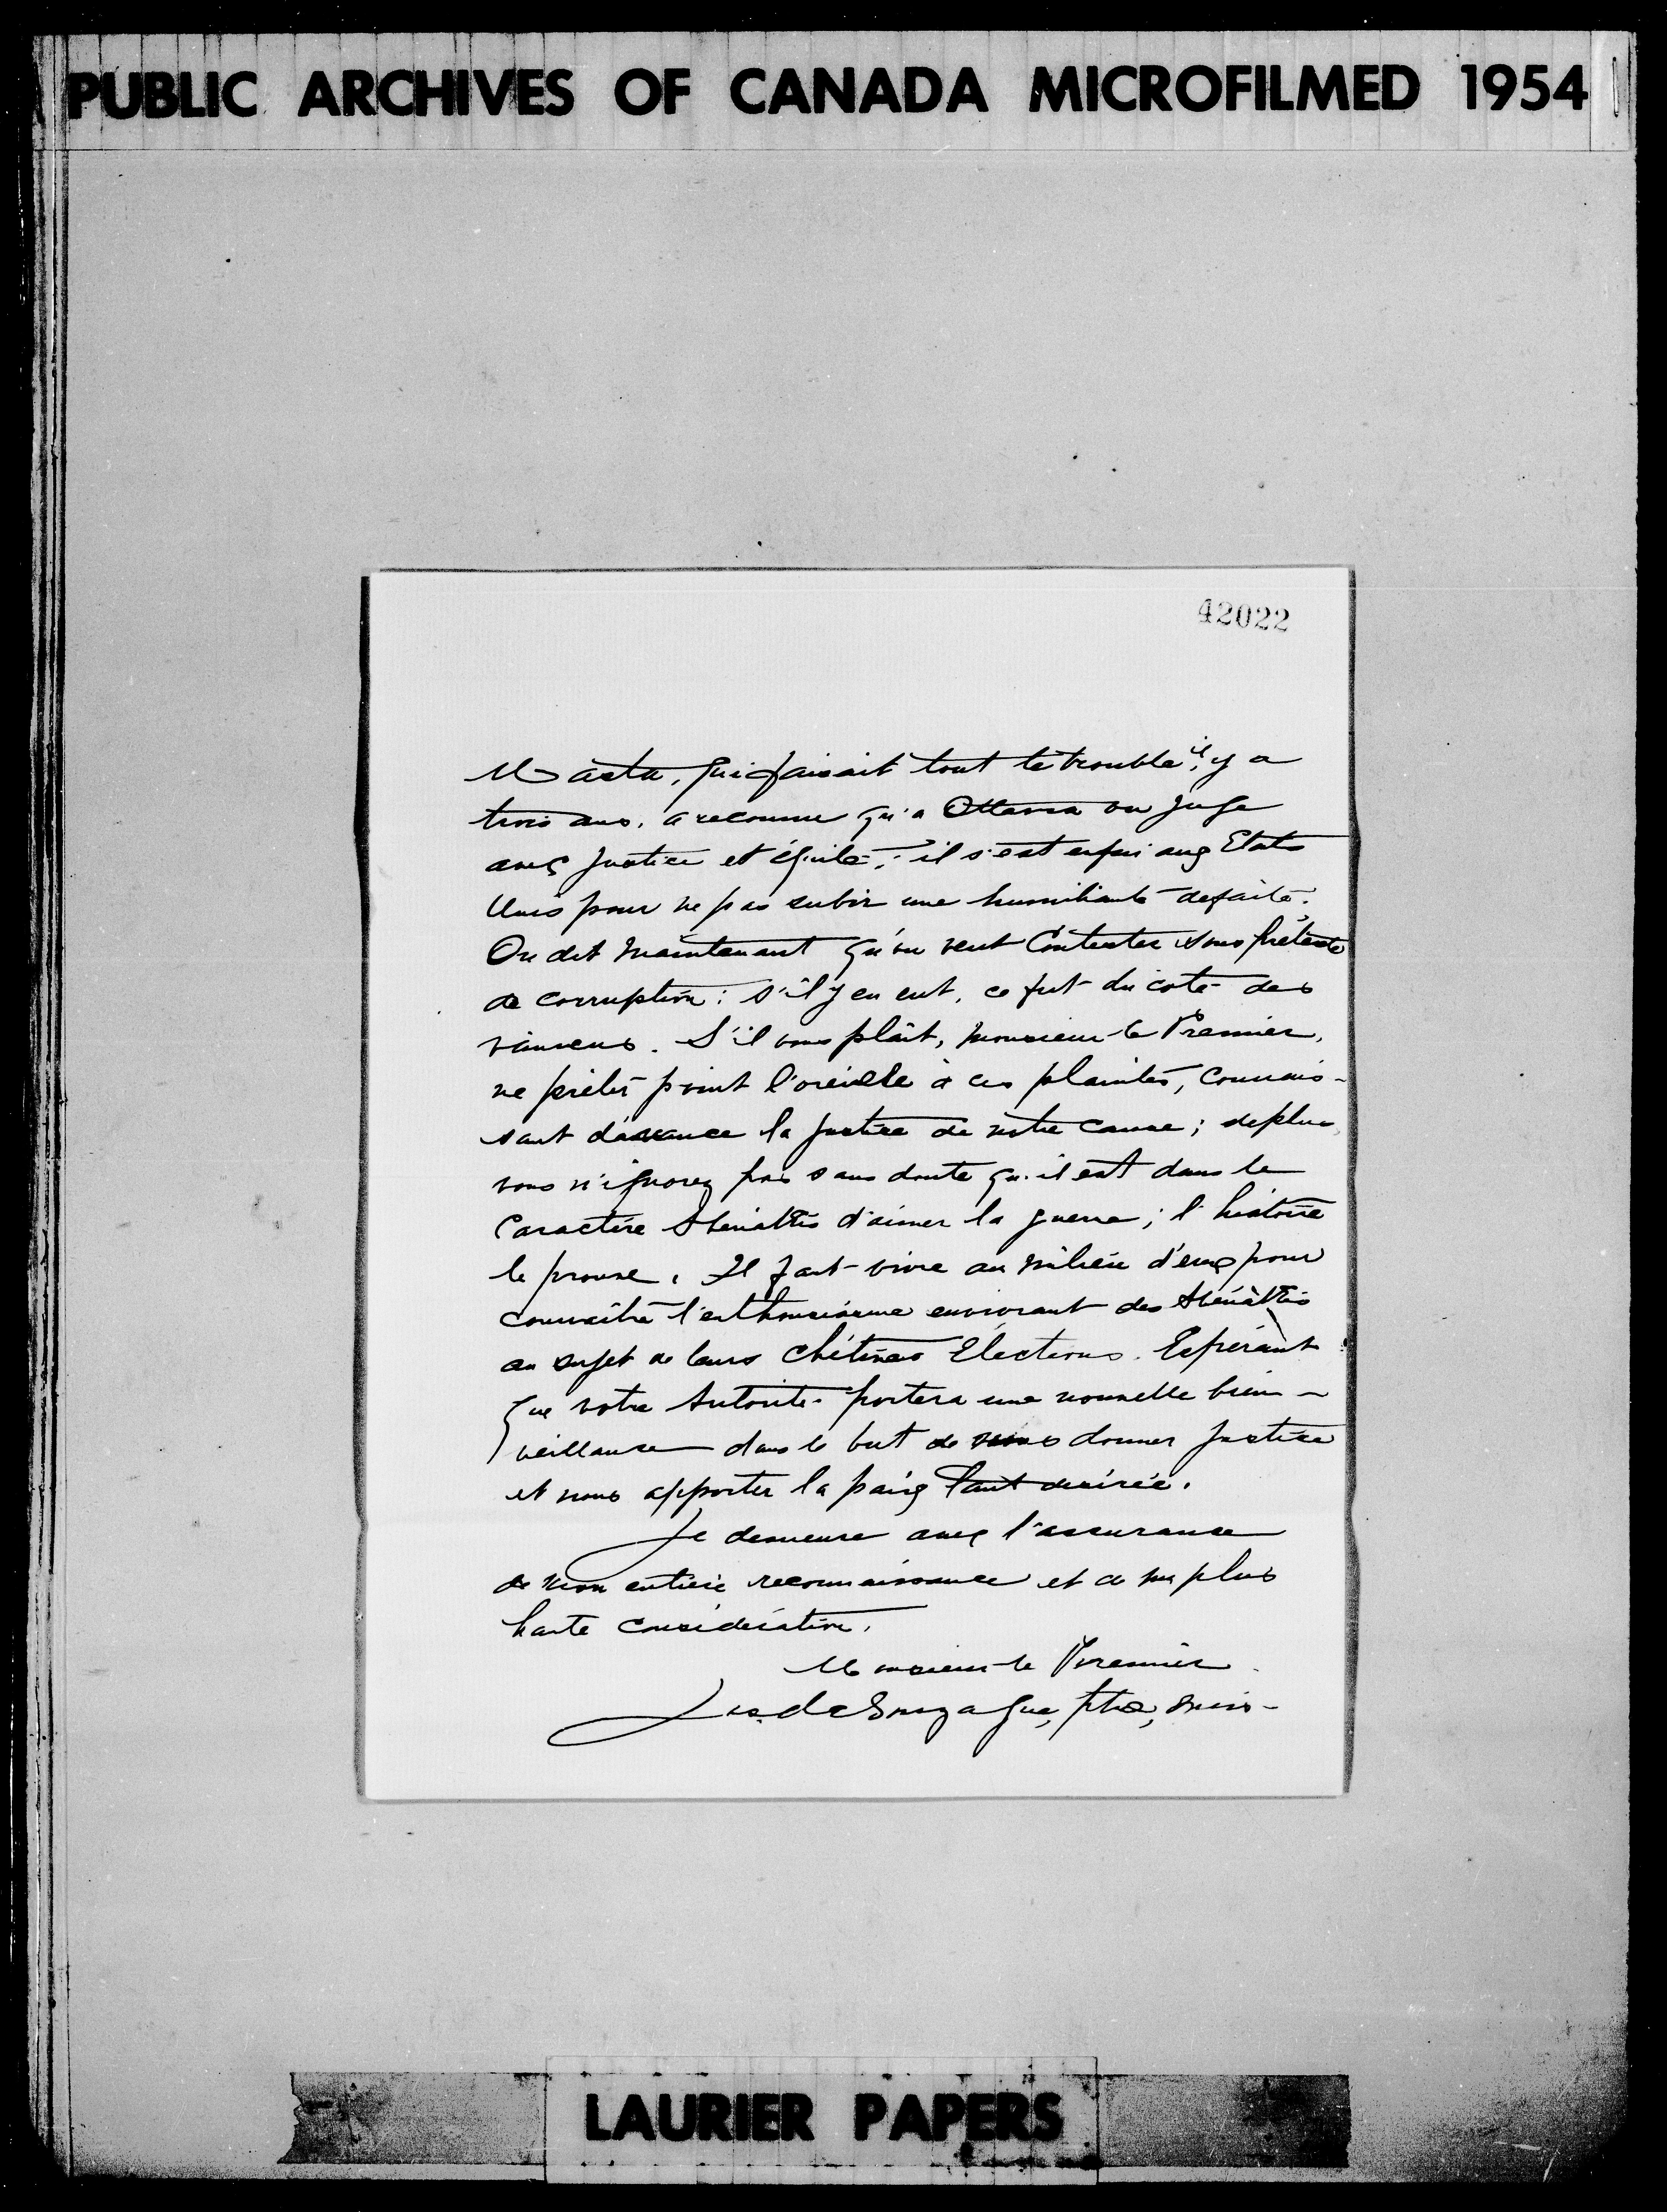 PUBLIC ARCHIVES OF CANADA MICROFILMED 1954
42022
Masta, qui faisait tout le trouble, il y a
trois ans, a reconnu qu'a Ottawa on juge
avec justice et équité; il s'est enfui aux Etats
Unis pour ne pas subir une humiliante defaite.
On dit maintenant qu'on veut Contester sous prétexte
de corruption: s'il y en eut, ce fut du coté des
vaincus. S'il vous plâit, monsieur le Premier,
ne prêtez point l'oreille à ces plaintes, connais-
sant d'avance la justice de notre cause; deplus,
vous n'ignorez pas sans doute qu'il est dans le
Caractère Abénakis d'aimer la guerre; l'histoire
le prouve. Il faut vivre au milieu d'eux pour
connaître l'enthousiasme enivrant des Abénakis
au sujet de leurs chétives Elections. Espérant
que votre Autorité portera une nouvelle bien-
veillance dans le but de nous donner justice
et nous apporter la paix tant desirée.
Je demeure avec l'assurance
de mon entière reconnaissance et de ma plus
haute consideration,
Monsieur le Premier
Jos. de Gonzague, ptre, miss-
LAURIER PAPERS